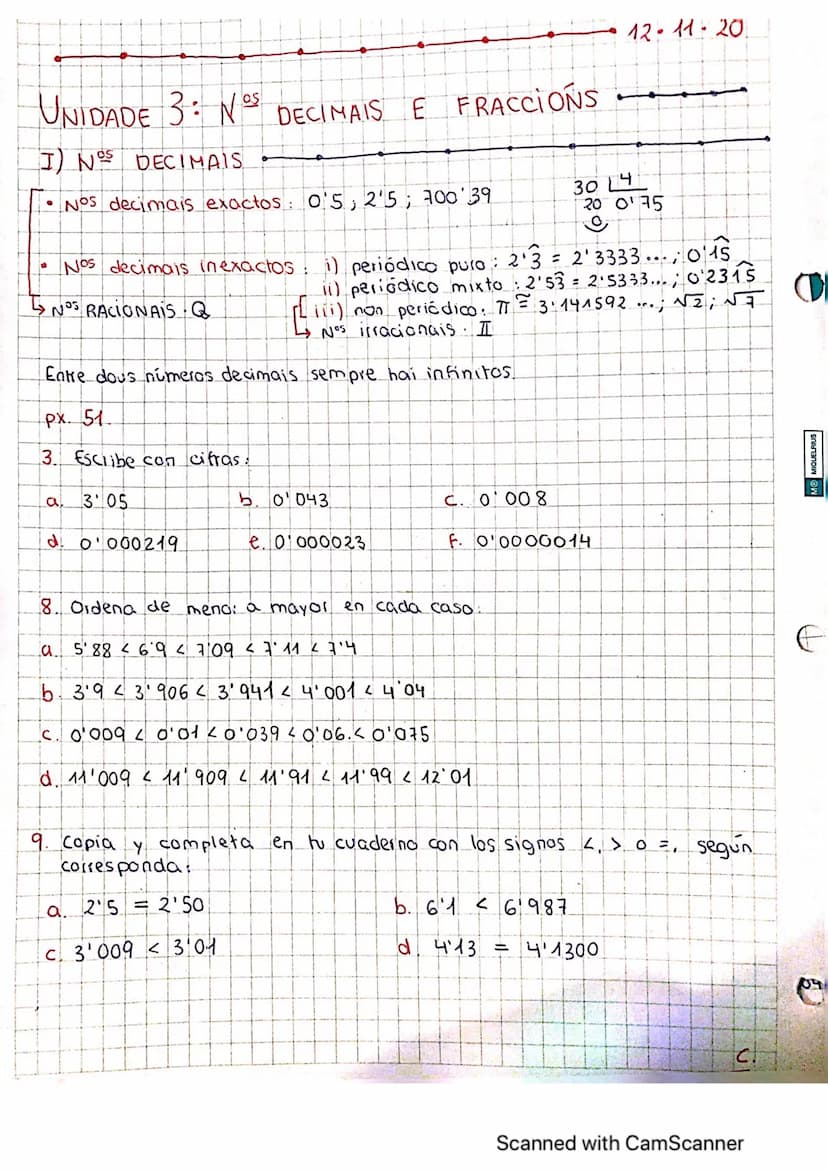 12·11·20
UNIDADE 3: Nos DECIMAIS E FRACCIOŃS
I) Nos DECIMAIS
• Nos decimais exactos: 0'5; 2'5; 700'39
30 4
20 0'75
0
• Nos decimais inexactos: i) periódico puro: 2'3̂ = 2'3333...; 0'1͡5
ii) periódico mixto: 2'53̂ = 2'5333...; 0'231͡5
↳ Nos RACIONAIS·Q
iii) non periódico: π ≅ 3'141592...; √2; √7
↳ Nos irracionais·II
Entre dous números decimais sempre hai infinitos.
px. 51.
3. Escribe con cifras:
a. 3'05 b. 0'043 c. 0'008
d. 0'000219 e. 0'000023 f. 0'0000014
8. Ordena de menor a mayor en cada caso.
a. 5'88 < 6'9 < 7'09 < 7'11 < 7'4
b. 3'9 < 3'906 < 3'941 < 4'001 < 4'04
c. 0'009 < 0'01 < 0'039 < 0'06.< 0'075
d. 11'009 < 11'909 < 11'91 < 11'99 < 12'01
9. Copia y completa en tu cuaderno con los signos <, > o =, según
corresponda:
a. 2'5 = 2'50 b. 6'1 < 6'987
c. 3'009 < 3'01 d. 4'13 = 4'1300
C.
MIQUELRIUS
Scanned with CamScanner